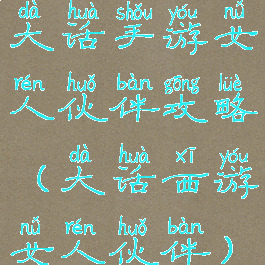 dà huà shǒu yóu nǚ
大话手游女
rén huǒ bàn gōng lüè
人伙伴攻略
dà huà xī yóu
（大话西游
nǚ rén huǒ bàn
女人伙伴）